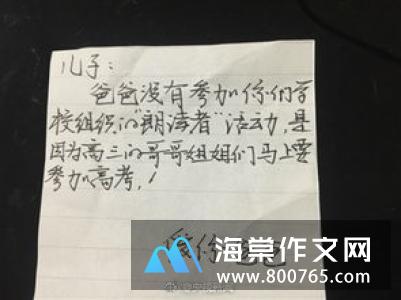 儿子：
爸爸没有参加你们学
校组织的"朗读者"活动，是
因为高三的哥哥姐姐们马上要
参加高考，！
爱你
海棠作文网
www.800765.com